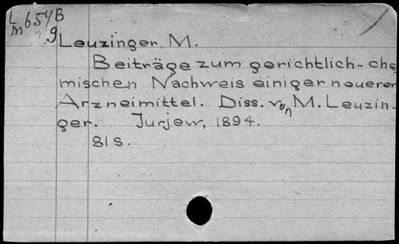 L654B
m g
Leuzinger, M.
Beiträge zum gerichtlich-che
mischen Nachweis einiger neuerer
Arzneimittel. Diss. von M. Leuzin-
ger. Jurjew, 1894.
81 S.